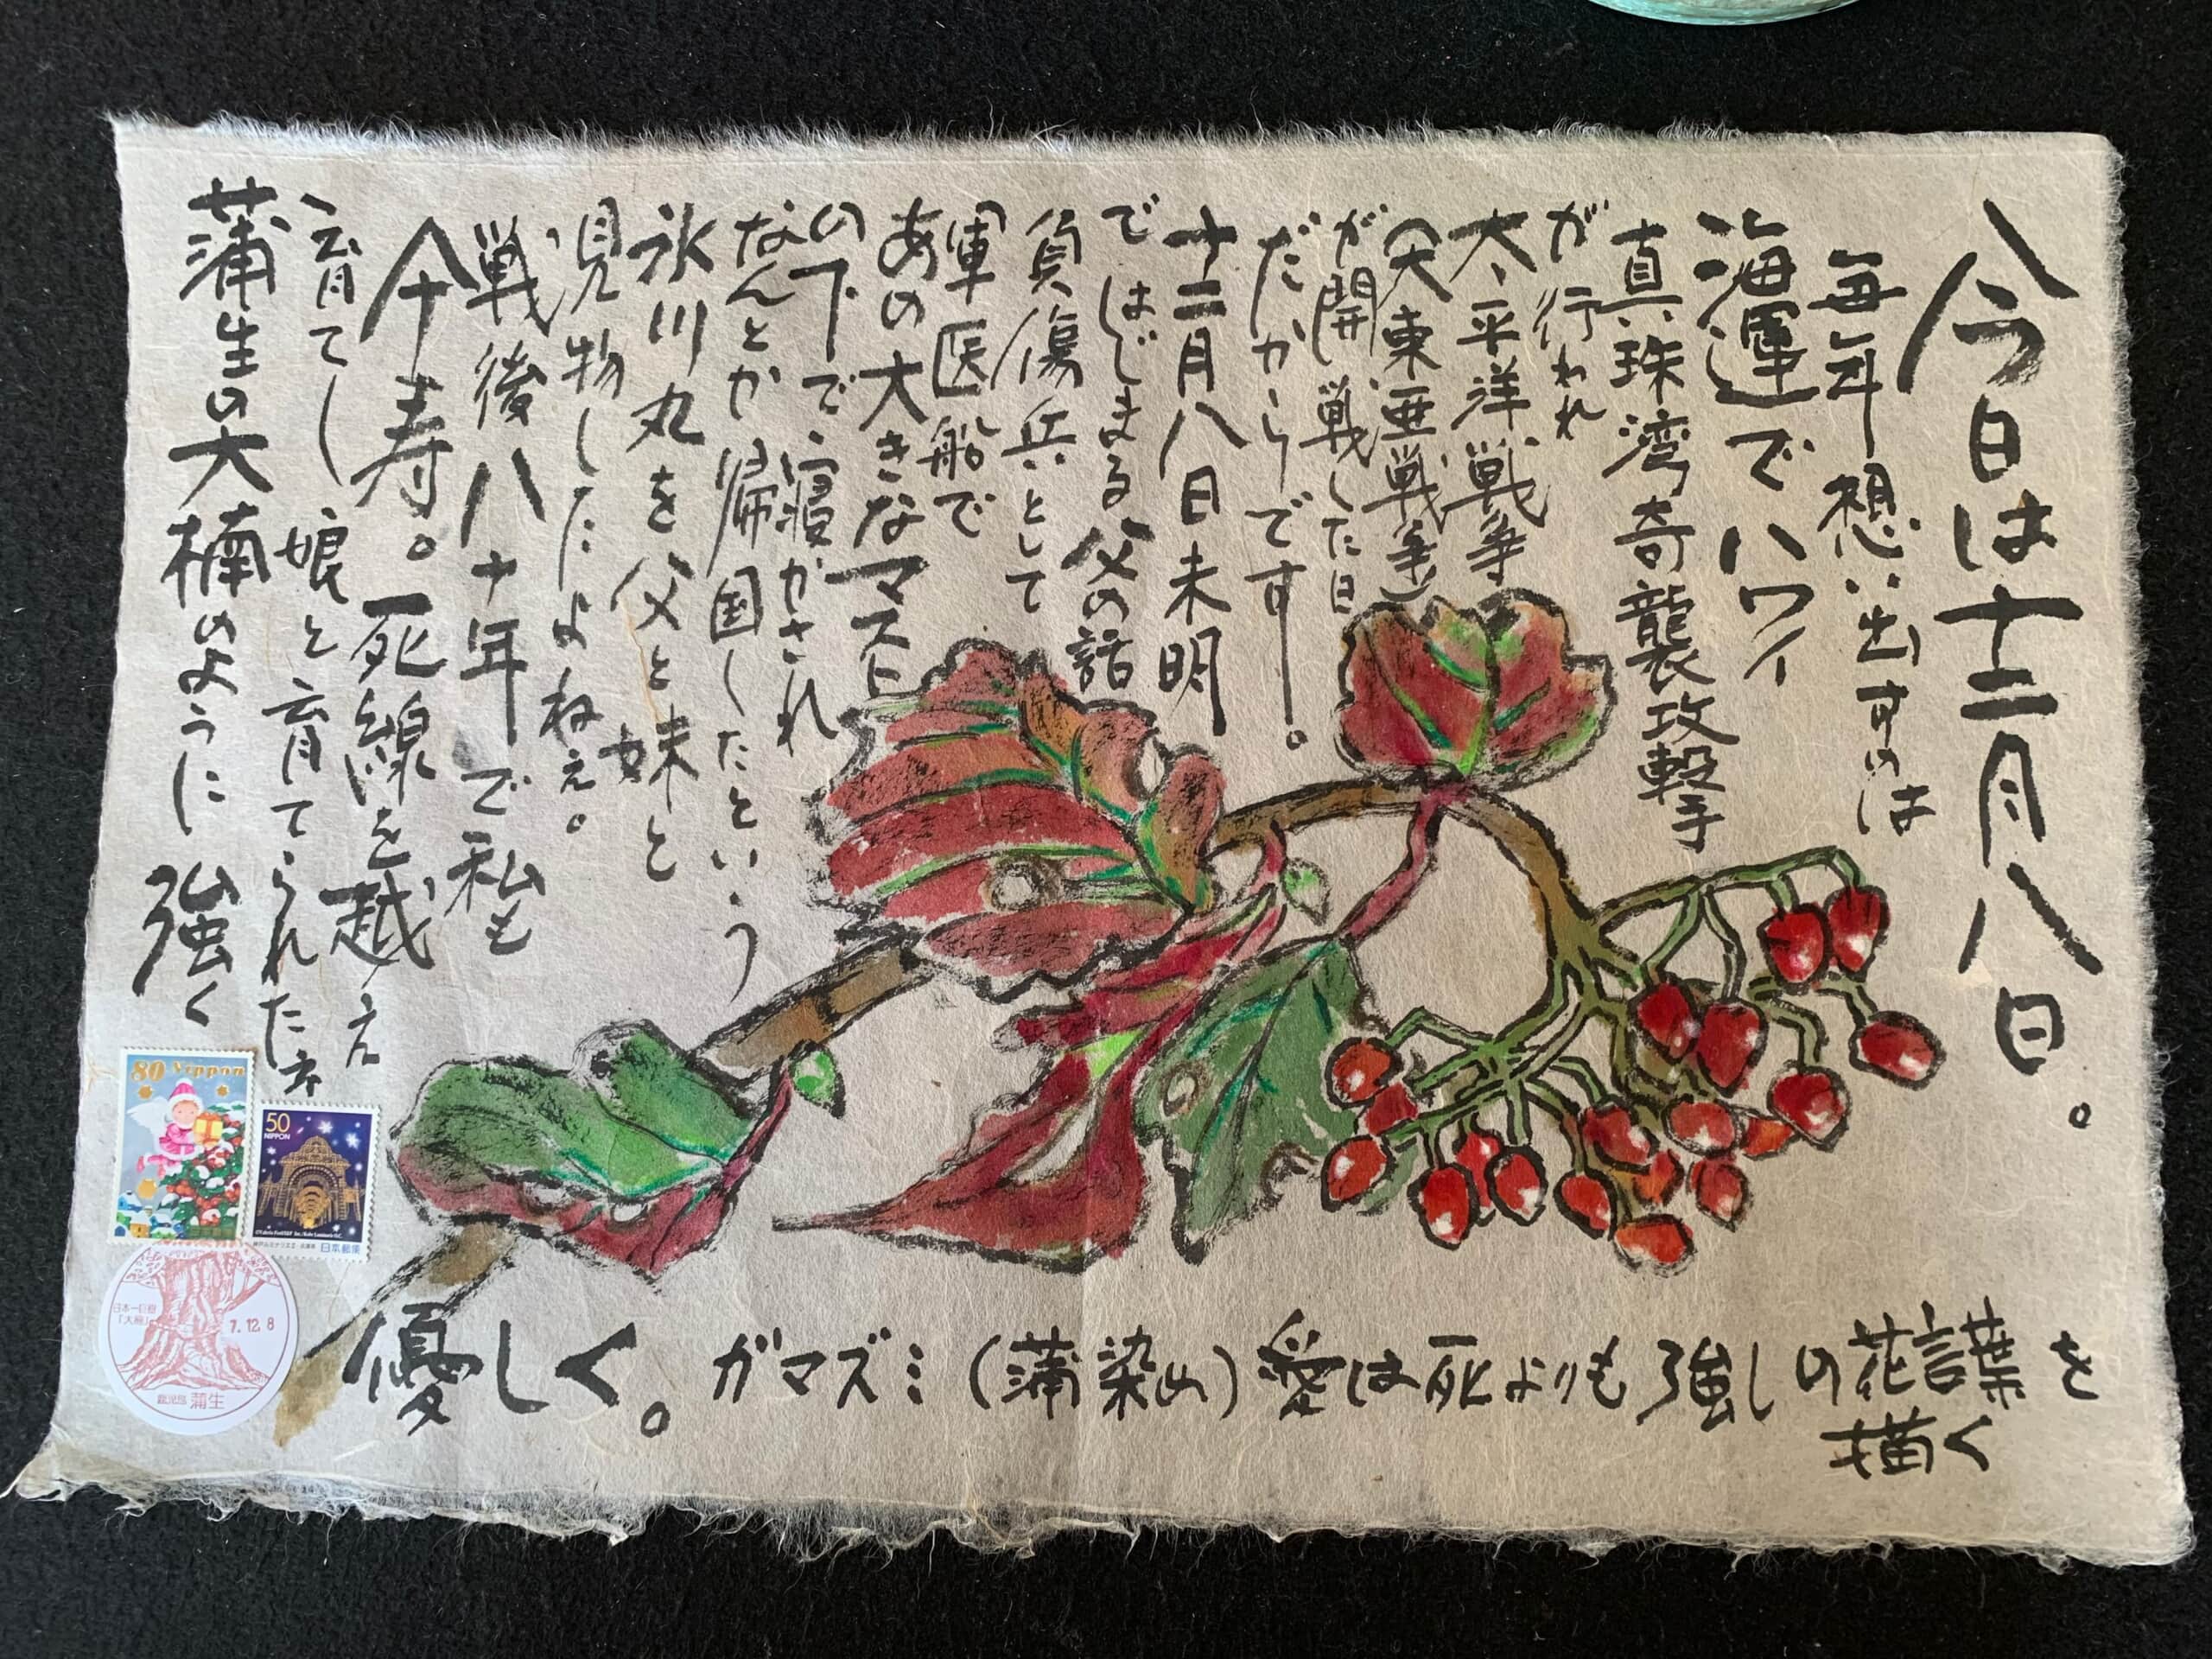 今日は十二月八日。
毎年想い出すのは
海運でハワイ
真珠湾奇襲攻撃
が行われ
太平洋戦争
(大東亜戦争)
が開戦した日
だからです。
十二月八日未明
ではじまる父の話
負傷兵として
軍医船で
あの大きなマスト
の下で寝かされ
なんとか帰国したという
氷川丸を父と妹と
見物したよねぇ。
戦後八十年で私も
傘寿。死線を越え
育てし娘と育てられたネ
蒲生の大楠のように強く
優しく。
ガマズミ(蒲染め)愛は死よりも強しの花言葉を
描く
80 Nippon
50
NIPPON
日本郵便
日本一巨樹
「大楠」
7.12.8
鹿児島 蒲生